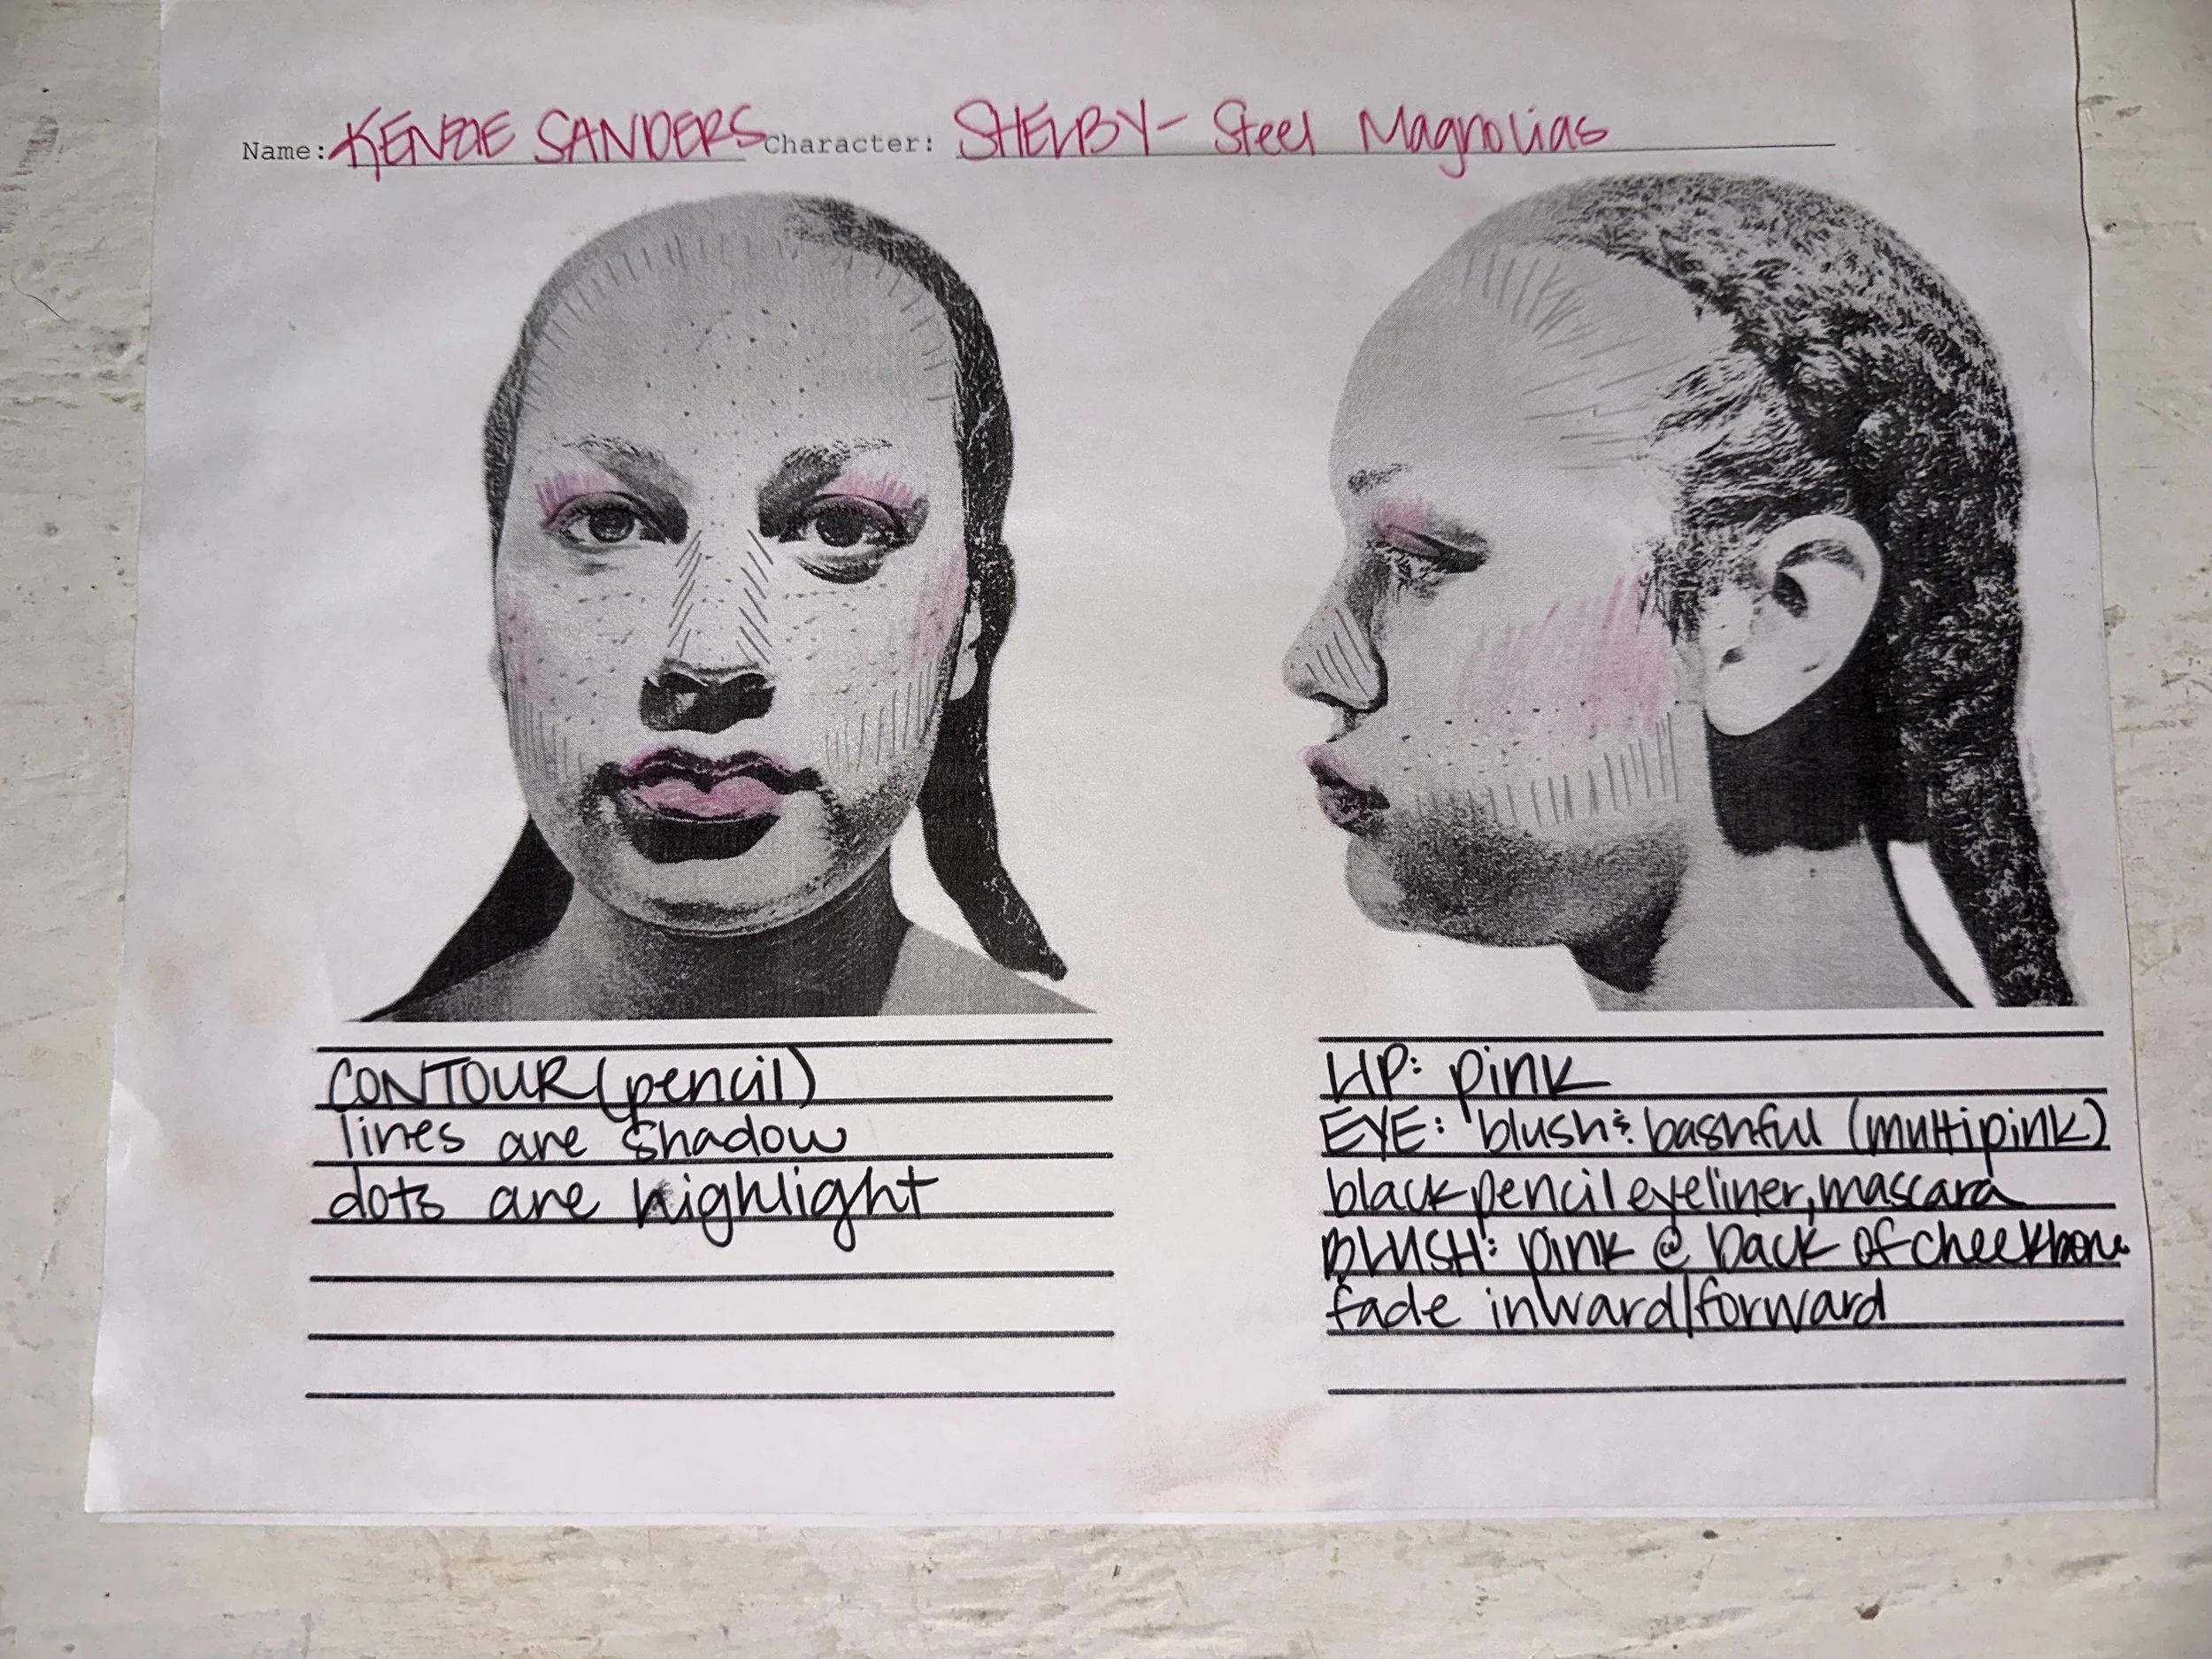 Name: KENZIE SANDERS Character: SHELBY - Steel Magnolias
CONTOUR (pencil)
lines are shadow
dots are highlight
LIP: pink
EYE: "blush & bashful (multipink)
black pencil eyeliner, mascara
BLUSH: pink @ back of cheekbone
fade inward/forward